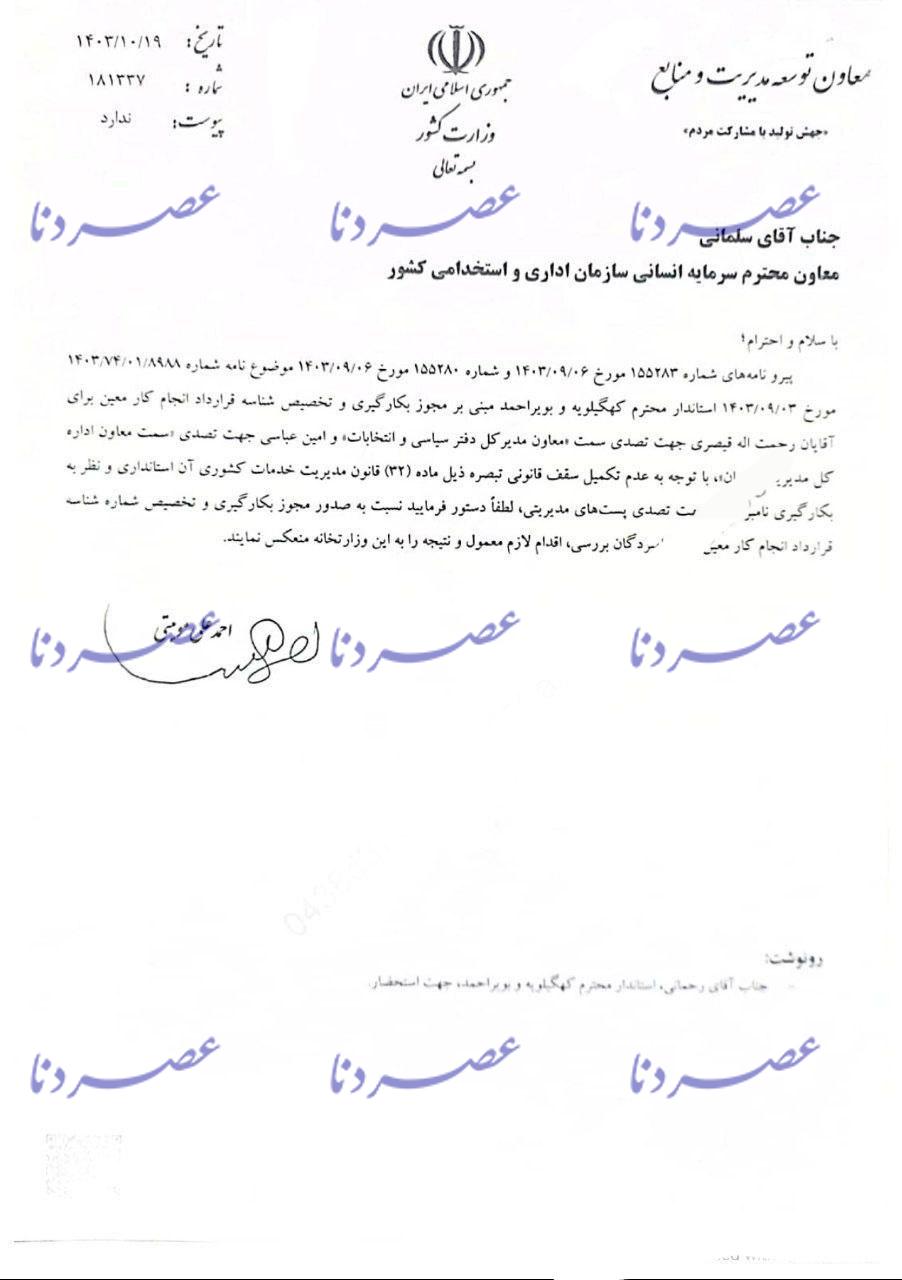 معاون توسعه مدیریت و منابع
«جهش تولید با مشارکت مردم»
جمهوری اسلامی ایران
وزارت کشور
بسمه تعالی
تاریخ: ۱۴۰۳/۱۰/۱۹
شماره: ۱۸۱۳۳۷
پیوست: ندارد
عصر دنا عصر دنا عصر دنا
جناب آقای سلمانی
معاون محترم سرمایه انسانی سازمان اداری و استخدامی کشور
با سلام و احترام؛
پیرو نامه‌های شماره ۱۵۵۲۸۳ مورخ ۱۴۰۳/۰۹/۰۶ و شماره ۱۵۵۲۸۰ مورخ ۱۴۰۳/۰۹/۰۶ موضوع نامه شماره ۱۴۰۳/۷۴/۰۱/۸۹۸۸
مورخ ۱۴۰۳/۰۹/۰۳ استاندار محترم کهگیلویه و بویراحمد مبنی بر مجوز بکارگیری و تخصیص شناسه قرارداد انجام کار معین برای
آقایان رحمت اله قیصری جهت تصدی سمت «معاون مدیرکل دفتر سیاسی و انتخابات» و امین عباسی جهت تصدی «سمت معاون اداره
کل ان»، با توجه به عدم تکمیل سقف قانونی تبصره ذیل ماده (۳۲) قانون مدیریت خدمات کشوری آن استانداری و نظر به
بکارگیری تصدی پست‌های مدیریتی، لطفاً دستور فرمایید نسبت به صدور مجوز بکارگیری و تخصیص شماره شناسه
قرارداد انجام کار بررسی، اقدام لازم معمول و نتیجه را به این وزارتخانه منعکس نمایند.
احمدعلی موهبتی
عصر دنا عصر دنا عصر دنا
رونوشت:
- جناب آقای رحمانی، استاندار محترم کهگیلویه و بویراحمد، جهت استحضار.
عصر دنا عصر دنا عصر دنا